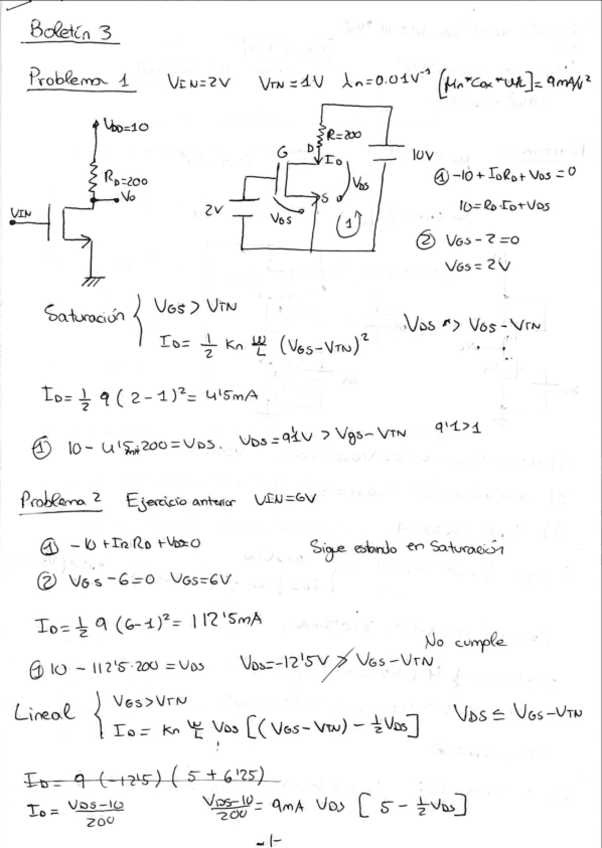 Boletín 3
Problema 1 VIN=2V VTN=1V λn=0.01V⁻¹ [μn*Cox*W/L]=9mA/V²
VDD=10
RD=200
Vo
VIN
G
D
R=200
ID
S
VDS
VGS
2V
10V
1
① -10+IDRD+VDS=0
10=RD·ID+VDS
② VGS-2=0
VGS=2V
Saturación { VGS>VTN
ID= 1/2 Kn W/L (VGS-VTN)²
VDS > VGS-VTN
ID=1/2 9(2-1)²=4'5mA
① 10-4'5mA·200=VDS. VDS=9'1V > Vgs-VTN 9'1>1
Problema 2 Ejercicio anterior VIN=6V
① -10+IDRD+VDS=0 Sigue estando en Saturación
② VGS-6=0 VGS=6V
ID=1/2 9(6-1)²=112'5mA
No cumple
① 10-112'5·200=VDS VDS=-12'5V ≯ VGS-VTN
Lineal { VGS>VTN
ID= Kn W/L VDS [(VGS-VTN)-1/2VDS]
VDS ≤ VGS-VTN
ID= 9 (-12'5) (5+6'25)
ID= VDS-10/200 VDS-10/200 = 9mA VDS [5-1/2VDS]
-1-